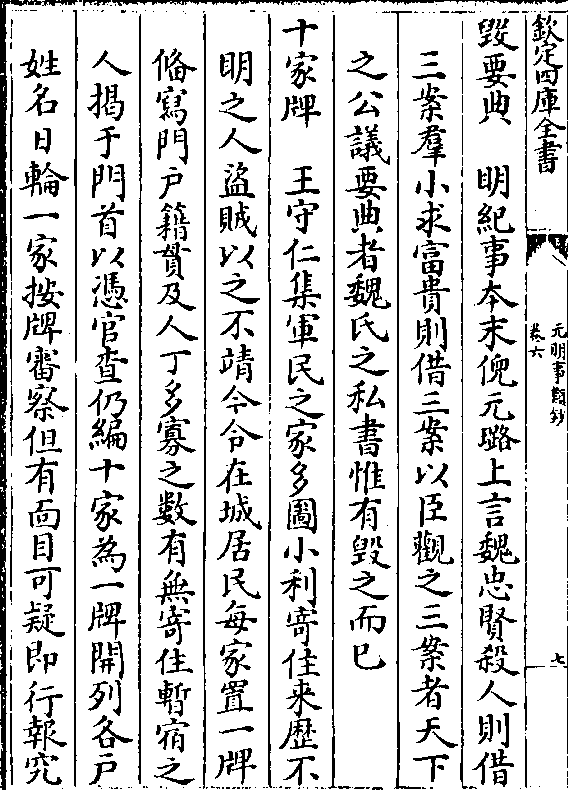 欽定四庫全書
元明事類鈔
卷六
七
毀要典　明紀事本末倪元璐上言魏忠賢殺人則借
三案羣小求富貴則借三案以臣觀之三案者天下
之公議要典者魏氏之私書惟有毀之而已
十家牌　王守仁集軍民之家多圖小利寄住来歴不
明之人盜賊以之不靖今令在城居民每家置一牌
偹寫門戶籍貫及人丁多寡之數有無寄住暫宿之
人揭于門首以憑官查仍編十家為一牌開列各戶
姓名日輪一家按牌審察但有面目可疑即行報究